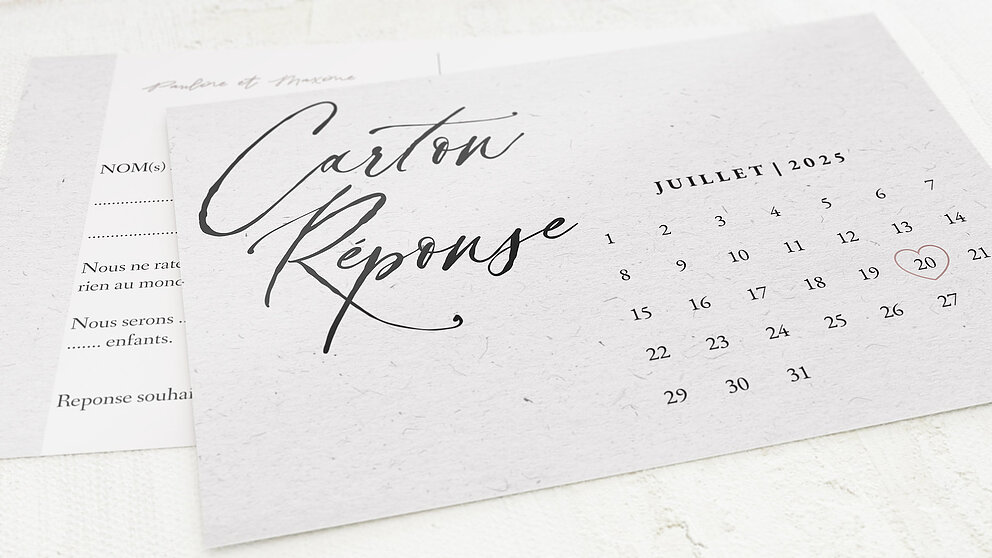 Pauline et Maxime
NOM(s)
Nous ne rat
rien au mon
Nous serons ..
....... enfants.
Reponse souhai
Carton
Réponse
JUILLET | 2025
1 2 3 4 5 6 7
8 9 10 11 12 13 14
15 16 17 18 19 20 21
22 23 24 25 26 27
29 30 31